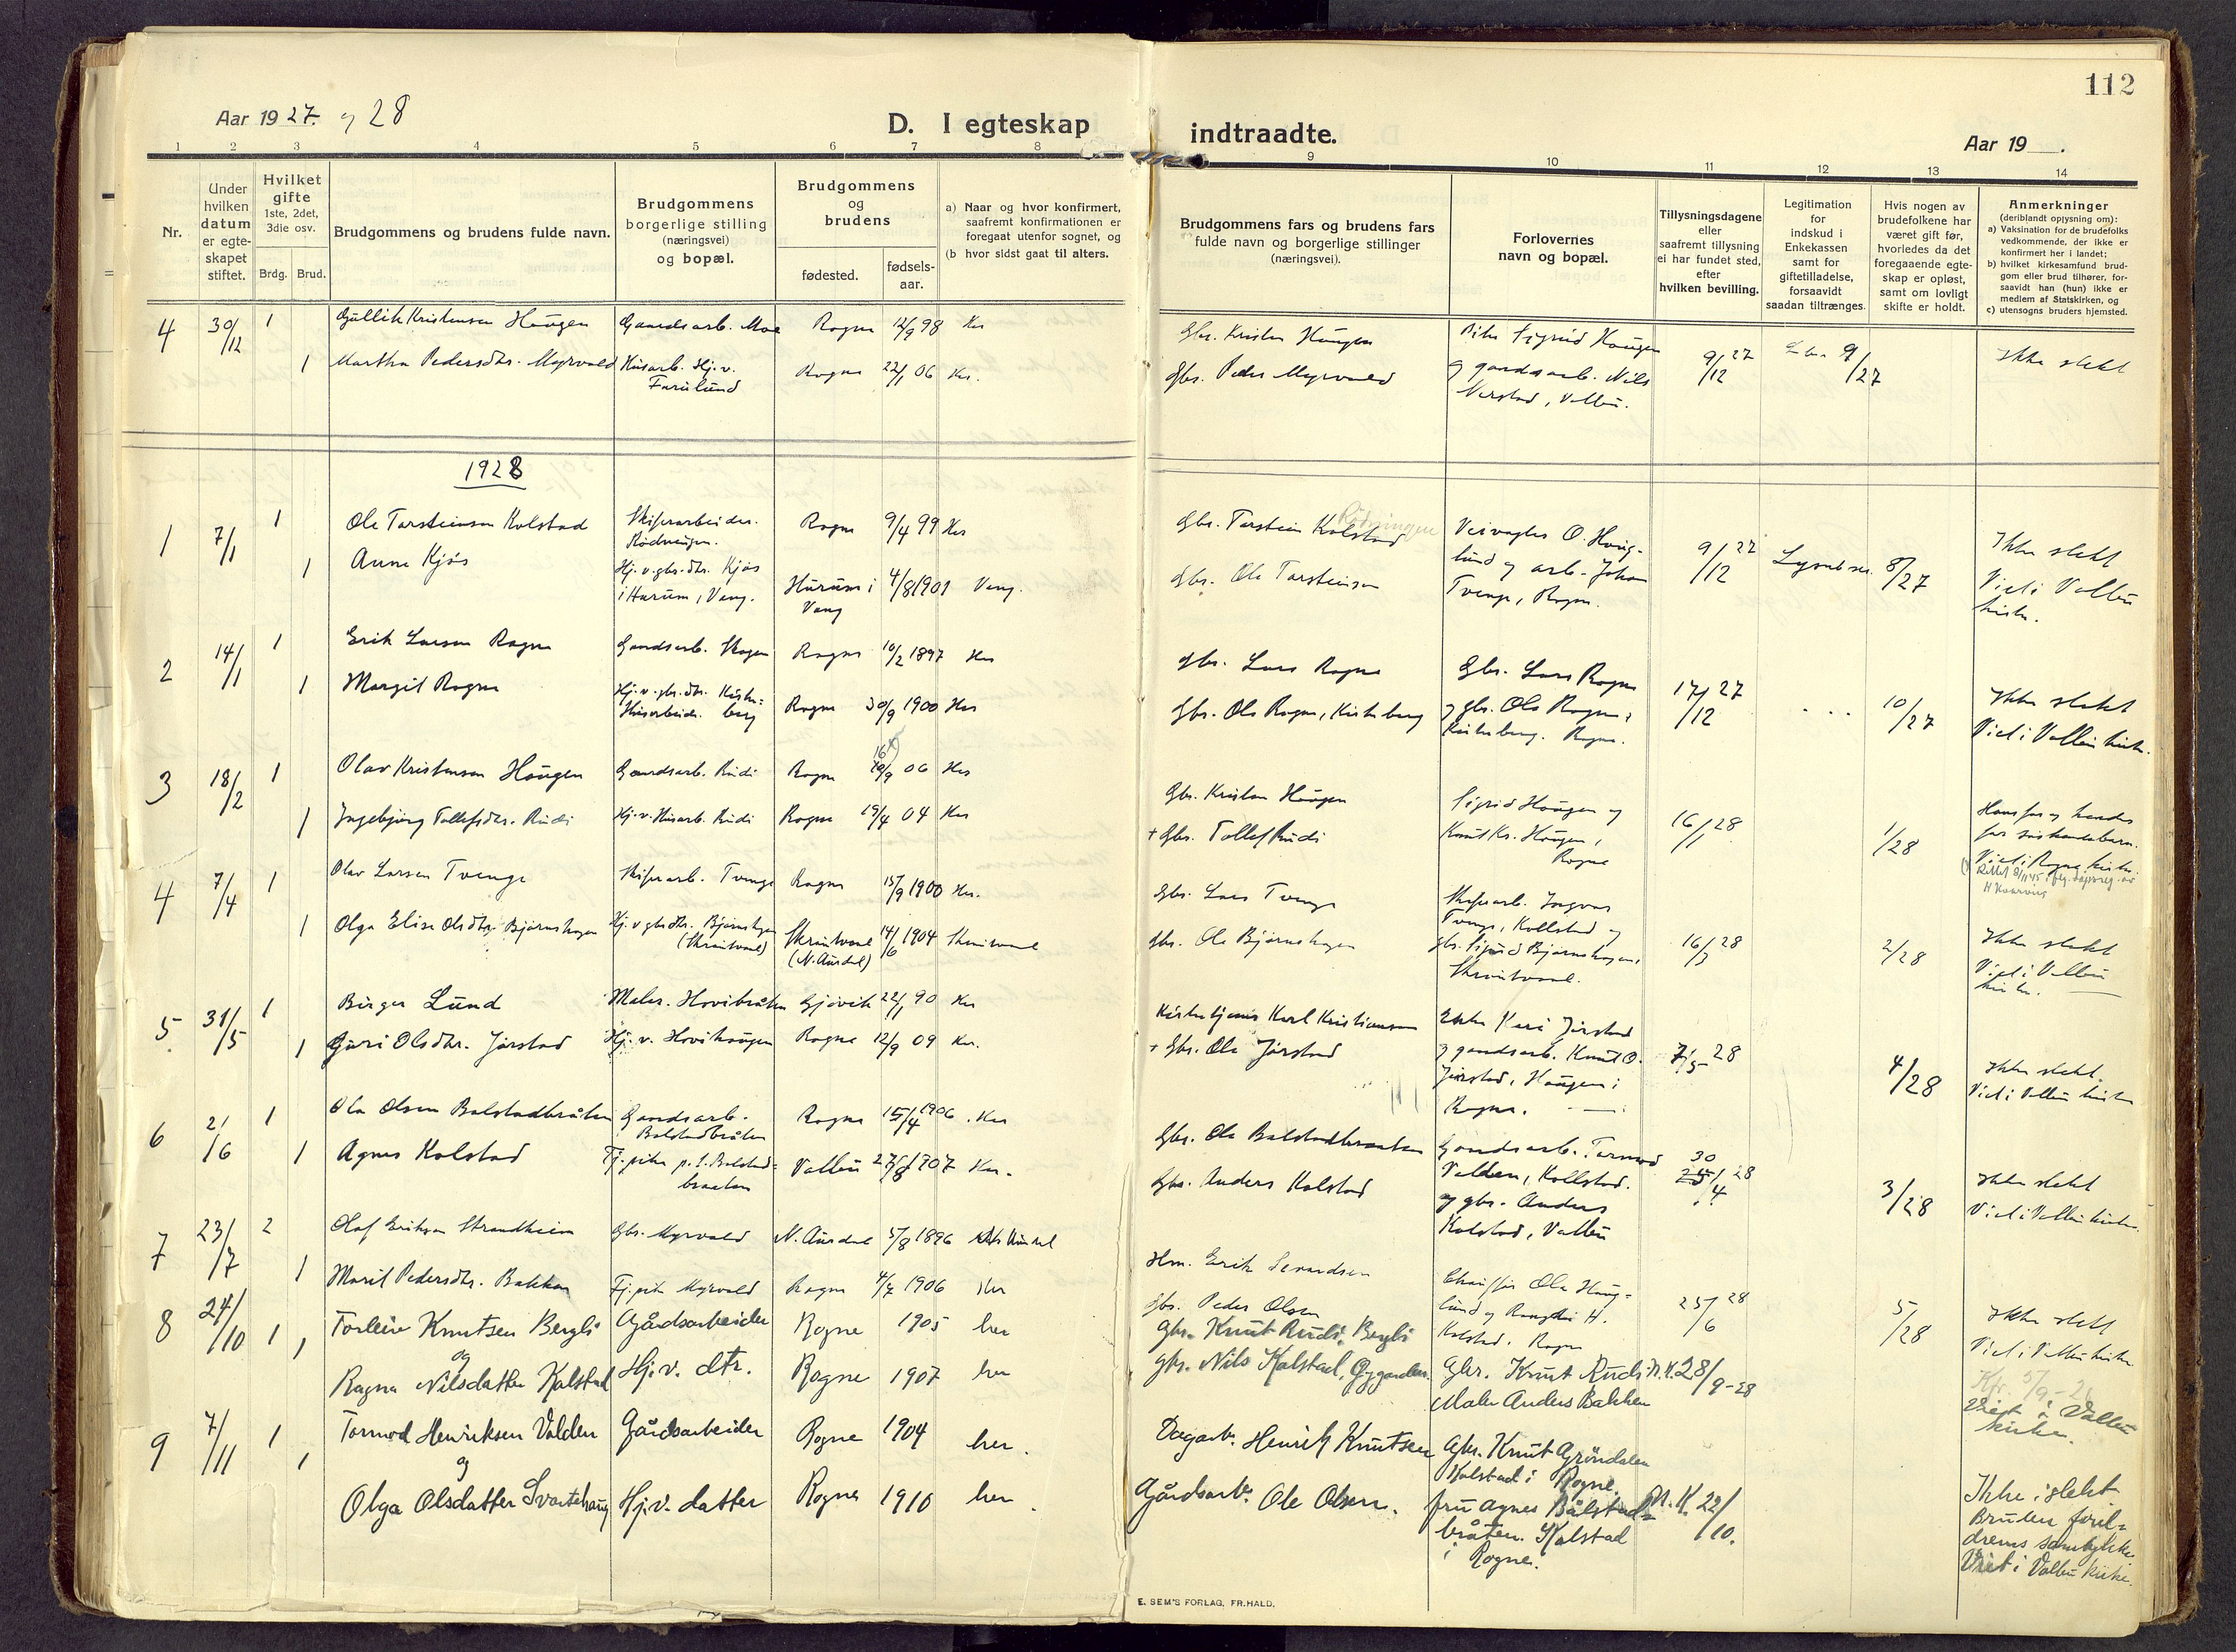 112
Aar 1927. og 28
D. I egteskap indtraadte.
Aar 19
1 2 3 4 5 6 7 8 9 10 11 12 13 14
Nr.
Under hvilken datum er egte-skapet stiftet.
Hvilket gifte 1ste, 2det, 3die osv.
Brdg. Brud.
Brudgommens og brudens fulde navn.
Brudgommens borgerlige stilling (næringsvei) og bopæl.
Brudgommens og brudens
fødested.
fødsels-aar.
a) Naar og hvor konfirmert, saafremt konfirmationen er foregaat utenfor sognet, og
(b hvor sidst gaat til alters.
Brudgommens fars og brudens fars fulde navn og borgerlige stillinger (næringsvei).
Forlovernes navn og bopæl.
Tillysningsdagene eller saafremt tillysning ei har fundet sted, efter hvilken bevilling.
Legitimation for indskud i Enkekassen samt for giftetilladelse, forsaavidt saadan tiltrænges.
Hvis nogen av brudefolkene har været gift før, hvorledes da det foregaaende egte-skap er opløst, samt om lovligt skifte er holdt.
Anmerkninger
(deriblandt oplysning om):
a) Vaksination for de brudefolks vedkommende, der ikke er konfirmert her i landet;
b) hvilket kirkesamfund brud-gom eller brud tilhører, for-saavidt han (hun) ikke er medlem af Statskirken, og
c) utensogns bruders hjemsted.
4 30/12 1 Gullik Kristensen Haugen Gaardsarb. Moe Rogne 12/9 98 Her
Gbr. Kristen Haugen
Sigrid Haugen
9/12 27
9/27
Ikke slekt
1 Martha Pedersdtr. Myrvold Husarb. Hj.v. Furulund Rogne 22/1 06 Her.
Gbr. Peder Myrvold
og gaardsarb. Nils
Verstad, Vollbu.
1928
1 7/1 1 Ole Torsteinson Kolstad Skiferarbeider. Rogne 9/4 99 Her
Gbr. Torstein Kolstad
Veivogter O. Haug-
lund og arb. Johan
Tvenge, Rogne.
9/12 27
8/27
Ikke slekt
Viet i Vollbu
kirke.
1 Anne Kjøs Hj.v. gbr.dtr. Kjøs i Hurum, Vang. Hurum i Vang 4/8 1901 Vang.
Gbr. Ole Torsteinson
2 14/1 1 Erik Larsen Rogne Gaardsarb. Skogen Rogne 10/2 1897 Her
Gbr. Lars Rogne
Gbr. Lars Rogne
og gbr. Ole Rogne,
Kirkeberg. Rogne.
17/12 27
10/27
Ikke slekt
Viet i Vollbu kirke.
1 Margit Rogne Hj.v. gbr.dtr. Kirke-berg Husarbeide. Rogne 30/9 1900 Her
Gbr. Ole Rogne, Kirkeberg
3 18/2 1 Olav Kristensen Haugen Gaardsarb. Rudi Rogne 06 Her
Gbr. Kristen Haugen
Sigrid Haugen og
Knut Kr. Haugen,
Rogne
16/1 28
1/28
Hans far og hendes
far søskendebarn.
Viet i Rogne kirke.
1 Ingebjørg Tollefsdtr. Rudi Hj.v. Husarb. Rudi Rogne 19/4 04 Her
+ Gbr. Tollef Rudi
4 7/4 1 Olav Larsen Tvenge Skiferarb. Tvenge Rogne 15/9 1900 Her.
Gbr. Lars Tvenge
Skiferarb. Ingvar
Tvenge, Kollstad og
gbr. Sigurd Bjørnshagen,
Skrautvaal.
16/3 28
2/28
Ikke slekt
Viet i Vollbu
kirke.
1 Olga Elise Olsdtr. Bjørnshagen Hj.v gbrdtr. Bjørnshagen (Skrautvaal) Skrautvaal (N. Aurdal) 14/6 1904 Skrautvaal
Gbr. Ole Bjørnshagen
5 31/5 1 Birger Lund Maler. Hovibråten Gjøvik 22/1 90 Her
Kirketjener Karl Kristiansen
Enke Kari Jarstad
og gaardsarb. Knut O.
Jarstad, Haugen i
Rogne.
7/5 28
4/28
Ikke slekt.
Viet i Vollbu kirke
1 Guri Olsdtr. Jarstad Hj.v. Hovihaugen Rogne 12/9 09 Her.
+ Gbr. Ole Jarstad
6 2/6 1 Ola Olsen Balstadbråten Gaardsarb. Balstadbråten Rogne 15/4 1906. Her
Gbr. Ole Balstadbraaten
Gaardsarb. Tormod
Volden, Kollstad.
og gbr. Anders
Kolstad, Vollbu
30/4 28
3/28
Ikke slekt
Viet i Vollbu kirke.
1 Agnes Kolstad Tj.pike p.t. Balstad-braaten Vollbu 1907 Her.
Gbr. Anders Kolstad
7 23/7 2 Olaf Erikson Strandheim Gbr. Myrvold N. Aurdal 5/8 1896
Hm. Erik Sevardsen
Chauffør Ole Haug-
lund og Rangdi H.
Kolstad. Rogne
25/6 28
5/28
Ikke slekt
Viet i Vollbu kirke
1 Marit Pedersdtr. Bakken Tj.pike Myrvold Rogne 4/7 1906 Her
Gbr. Peder Olsen
8 24/10 1 1 Torleiv Knutsen Bergli Gårdsarbeider Rogne 1905 her
og
Gbr. Knut Rudi, Bergli
Gbr. Knut Rudi
Maler Anders Bakken
N.K. 28/9-28
Viet i Vollbu
kirke.
Ragna Nilsdatter Kolstad Hj.v. dtr. Rogne 1907 her
gbr. Nils Kolstad,
9 7/11 1 1 Tormod Henriksen Volden Gårdsarbeider Rogne 1904 her.
og
Dagarb. Henrik Knutsen
Gbr. Knut Grøndalen
Kolstad i Rogne.
fru Agnes Bålstad-
bråten. Kolstad
i Rogne.
N.K. 22/10.
Ikke i slekt
Bruden foræl-
drenes samtykke.
Viet i Vollbu kirke.
Olga Olsdatter Svartehaug Hj.v. datter Rogne 1910 her.
Gårdsarb. Ole Olsen.
E. SEM'S FORLAG, FR.HALD.